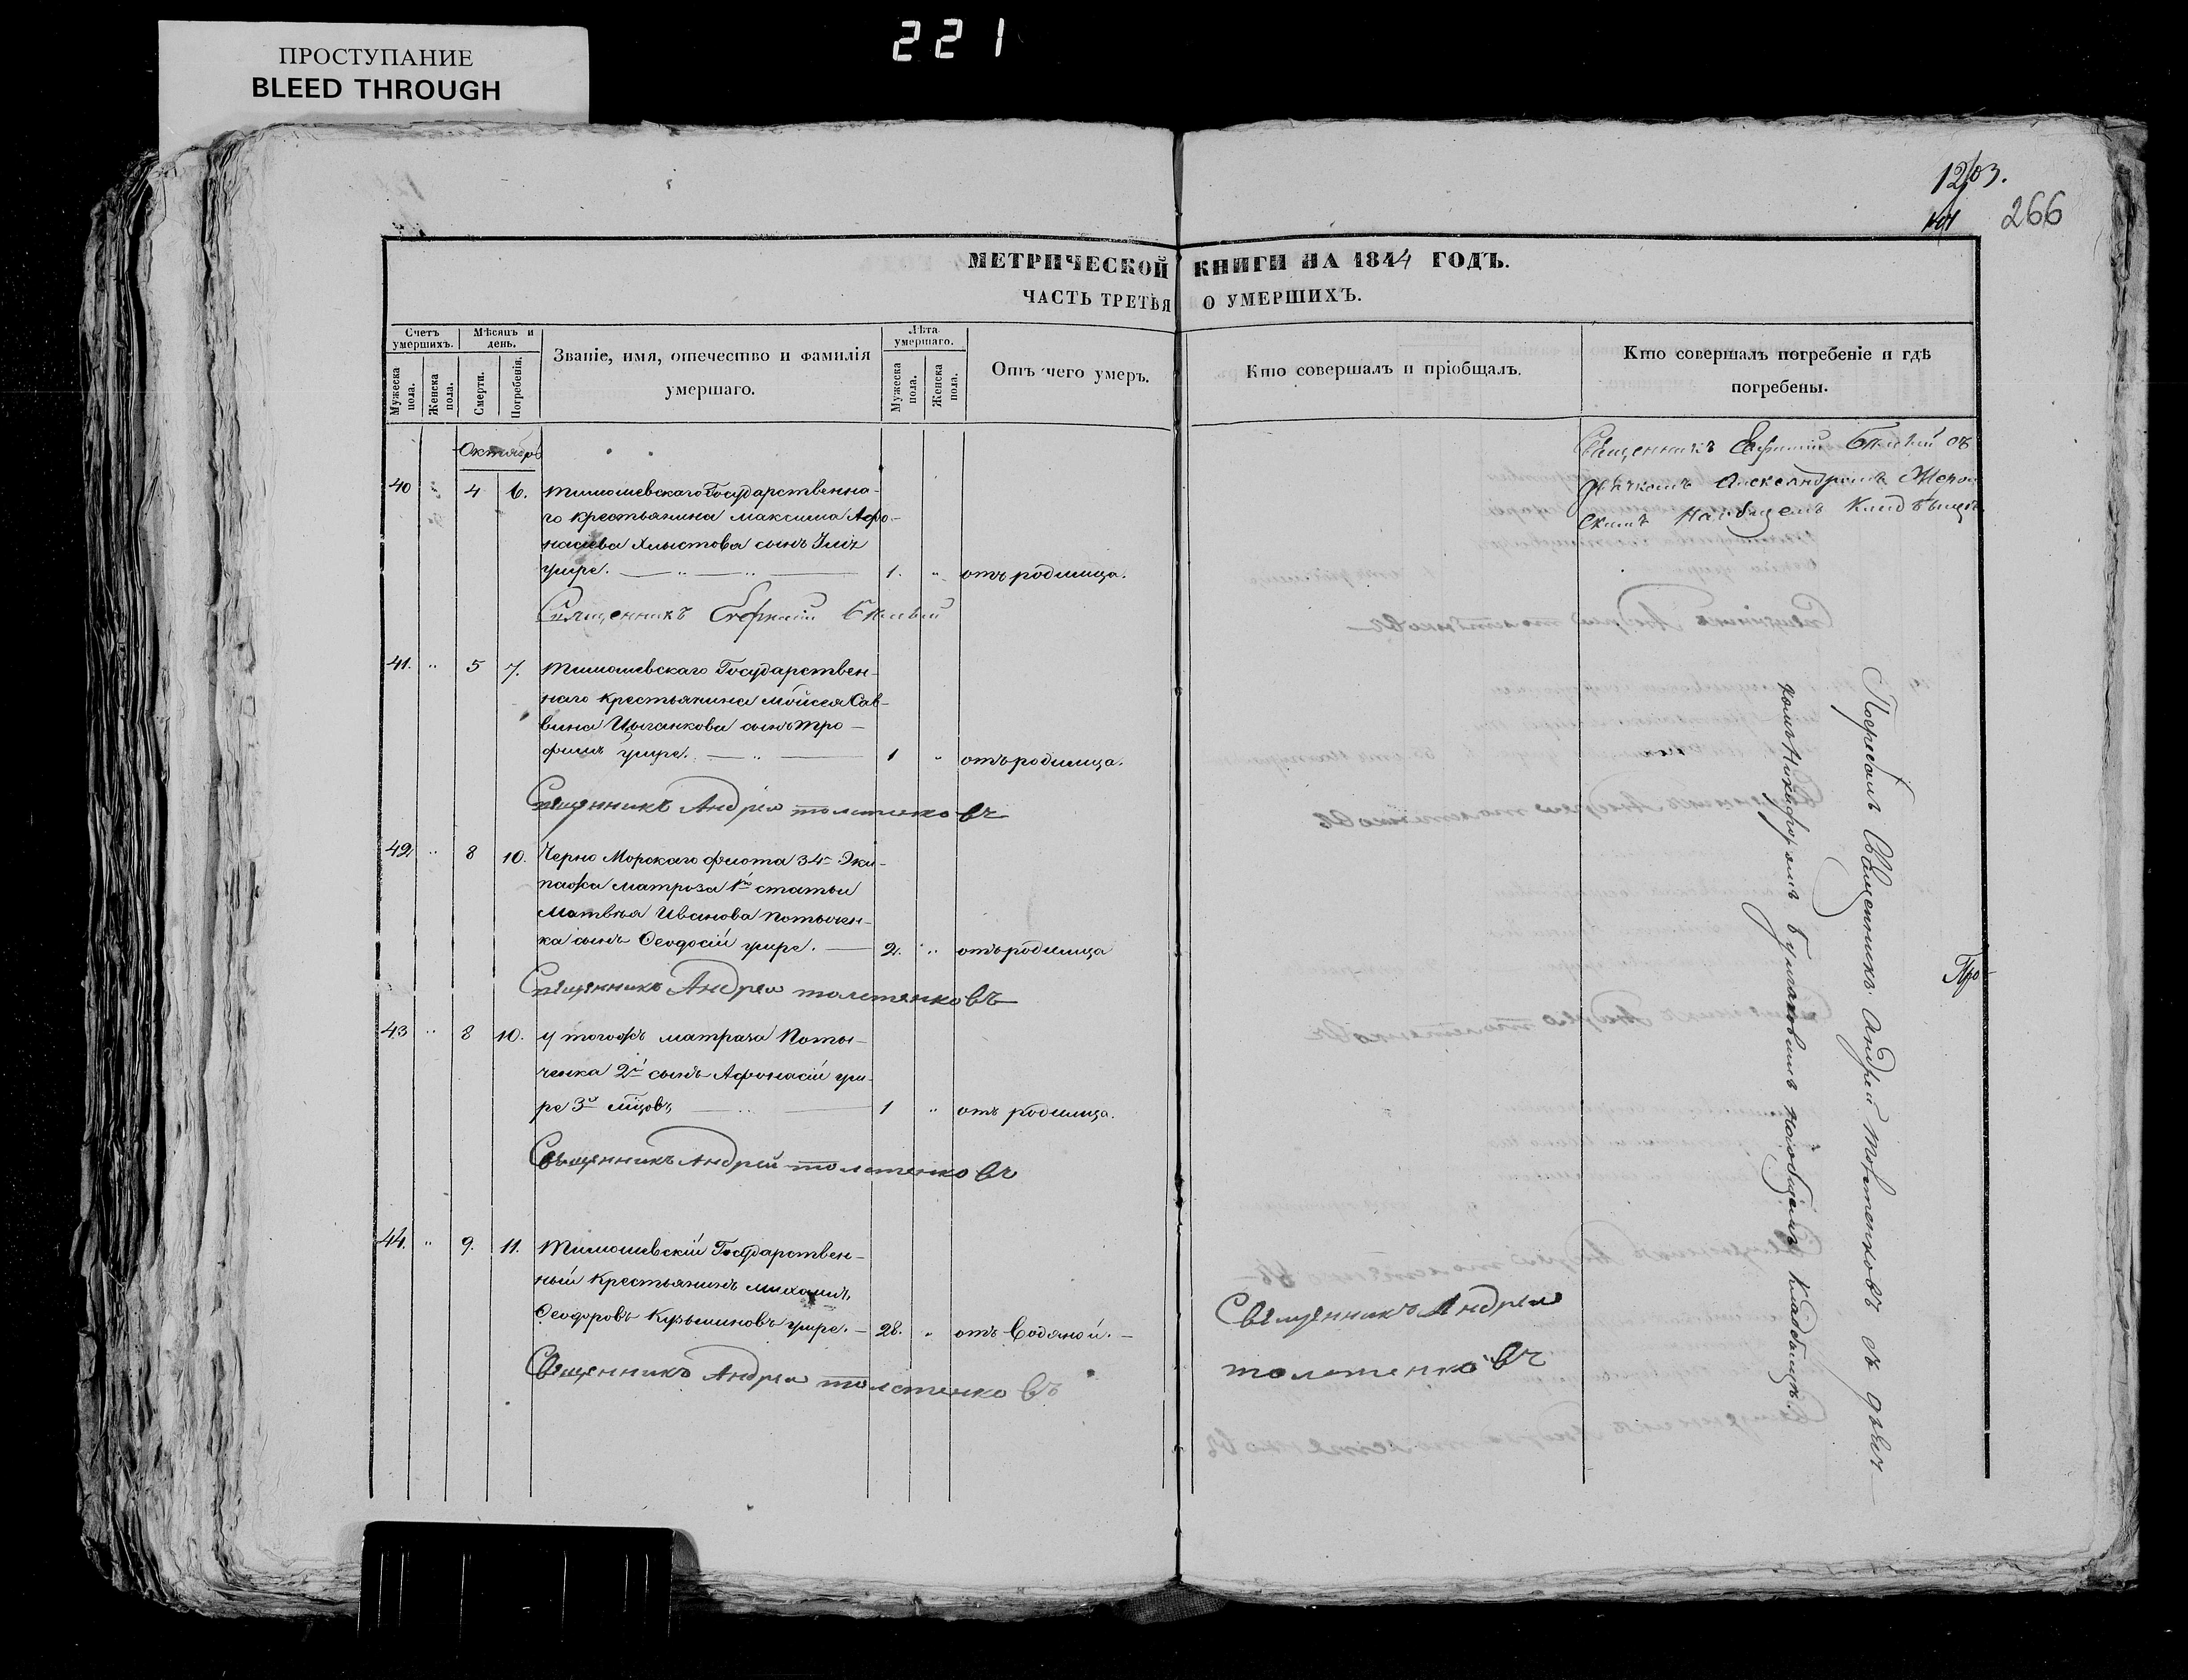 ПРОСТУПАНИЕ
BLEED THROUGH
221
1203.
266
МЕТРИЧЕСКОЙ КНИГИ НА 1844 ГОДЪ.
ЧАСТЬ ТРЕТЬЯ О УМЕРШИХЪ.
Счетъ умершихъ.
Мужеска пола.
Женска пола.
Мѣсяцъ и день.
Смерти.
Погребенія.
Званіе, имя, отечество и фамилія
умершаго.
Лѣта умершаго.
Мужеска пола.
Женска пола.
Отъ чего умеръ.
Кто совершалъ и пріобщалъ.
Кто совершалъ погребеніе и гдѣ
погребены.
Октябрь
40 " 4 6. Тимошевскаго Государственна-
го крестьянина Максима Афо-
насьева Хлыстова сынъ
умре. 1. " отъ родимца.
Священникъ Евфимій
41. " 5 7. Тимошевскаго Государствен-
наго крестьянина Мойсея Сав-
вина Цыганкова сынъ Тро-
фимъ умре. 1 " отъ родимца.
Священникъ Андрей Толстенковъ
42 " 8 10. Черно Морскаго флота 34го Эки-
пажа матроза 1й статьи
Матвѣя Иванова Потычен-
ка сынъ Ѳеодосій умре. 2. " отъ родимца
Священникъ Андрей Толстенковъ
43 " 8 10. У тогожъ матроза Поты-
ченка 2й сынъ Афонасій уме-
ре 3х 1 " отъ родимца.
Священникъ Андрей Толстенковъ
44. " 9. 11. Тимошевскій Государствен-
ный крестьянинъ Михаилъ
Ѳеодоровъ Кузьминовъ умре. 28. " отъ водяной.
Священникъ Андрей Толстенковъ
Священникъ Андрей
Толстенковъ
Священникъ Евфимій съ
дьячкомъ Александромъ
на общемъ кладбищѣ
Погребалъ Священникъ Андрей Толстенковъ съ дьяч-
комъ Никифоромъ на общемъ кладбищѣ.
Про-